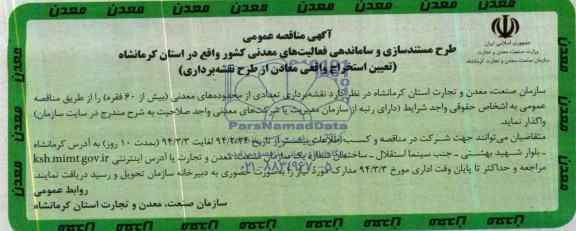 جمهوری اسلامی ایران
وزارت صنعت، معدن و تجارت
سازمان صنعت، معدن و تجارت استان کرمانشاه
آگهی مناقصه عمومی
طرح مستندسازی و ساماندهی فعالیت‌های معدنی کشور واقع در استان کرمانشاه
(تعیین استخراج واقعی معادن از طرح نقشه‌برداری)
سازمان صنعت، معدن و تجارت استان کرمانشاه در نظر دارد نقشه‌برداری تعدادی از محدوده‌های معدنی (بیش از ۶۰ فقره) را از طریق مناقصه
عمومی به اشخاص حقوقی واجد شرایط (دارای رتبه از سازمان مدیریت یا شرکت‌های معدنی واجد صلاحیت به شرح مندرج در سایت سازمان)
واگذار نماید.
متقاضیان می‌توانند جهت شرکت در مناقصه و کسب اطلاعات بیشتر از تاریخ ۹۴/۲/۲۴ لغایت ۹۴/۳/۳ (بمدت ۱۰ روز) به آدرس کرمانشاه
ـ بلوار شهید بهشتی ـ جنب سینما استقلال ـ ساختمان شماره یک سازمان صنعت، معدن و تجارت یا آدرس اینترنتی ksh.mimt.gov.ir
مراجعه و حداکثر تا پایان وقت اداری مورخ ۹۴/۳/۳ مدارک مورد نیاز را بصورت حضوری به دبیرخانه سازمان تحویل و رسید دریافت نمایند.
روابط عمومی
سازمان صنعت، معدن و تجارت استان کرمانشاه
ParsNamadData
۰۲۱-۸۸۳۴۹۶۷۰-۵